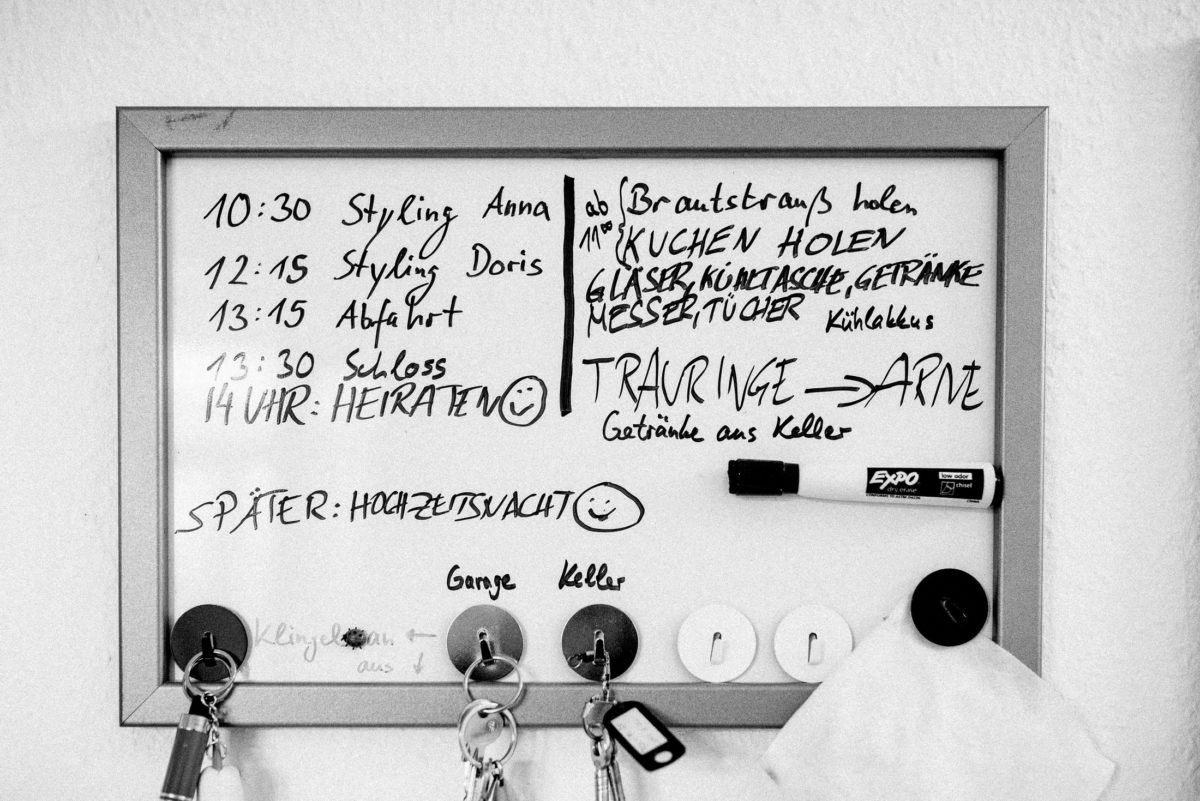 10:30 Styling Anna
12:15 Styling Doris
13:15 Abfahrt
13:30 Schloss
14 UHR: HEIRATEN
SPÄTER: HOCHZEITSNACHT
ab 11⁰⁰
Brautstrauß holen
KUCHEN HOLEN
GLÄSER, KÜHLTASCHE, GETRÄNKE
MESSER, TÜCHER Kühlakkus
TRAURINGE → ARNE
Getränke aus Keller
EXPO
dry erase
low odor
chisel
Garage Keller
Klingel an ←
aus ↓